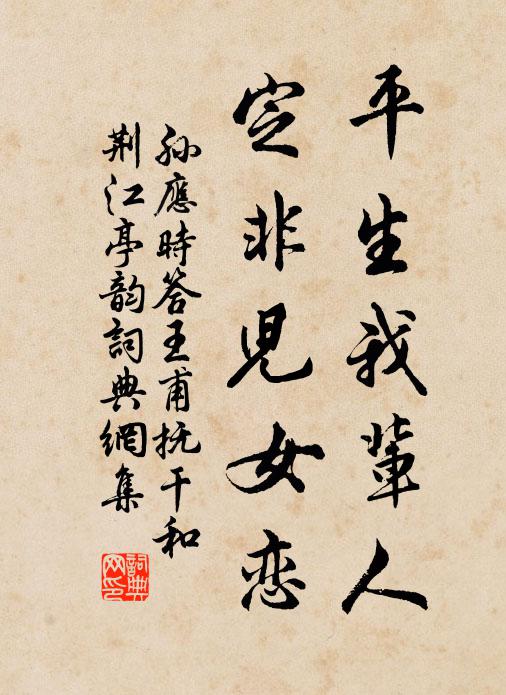 平生我輩人
定非兒女恋
孫應時答王甫撫干和
荆江亭韵詞典網集
詞典
网印